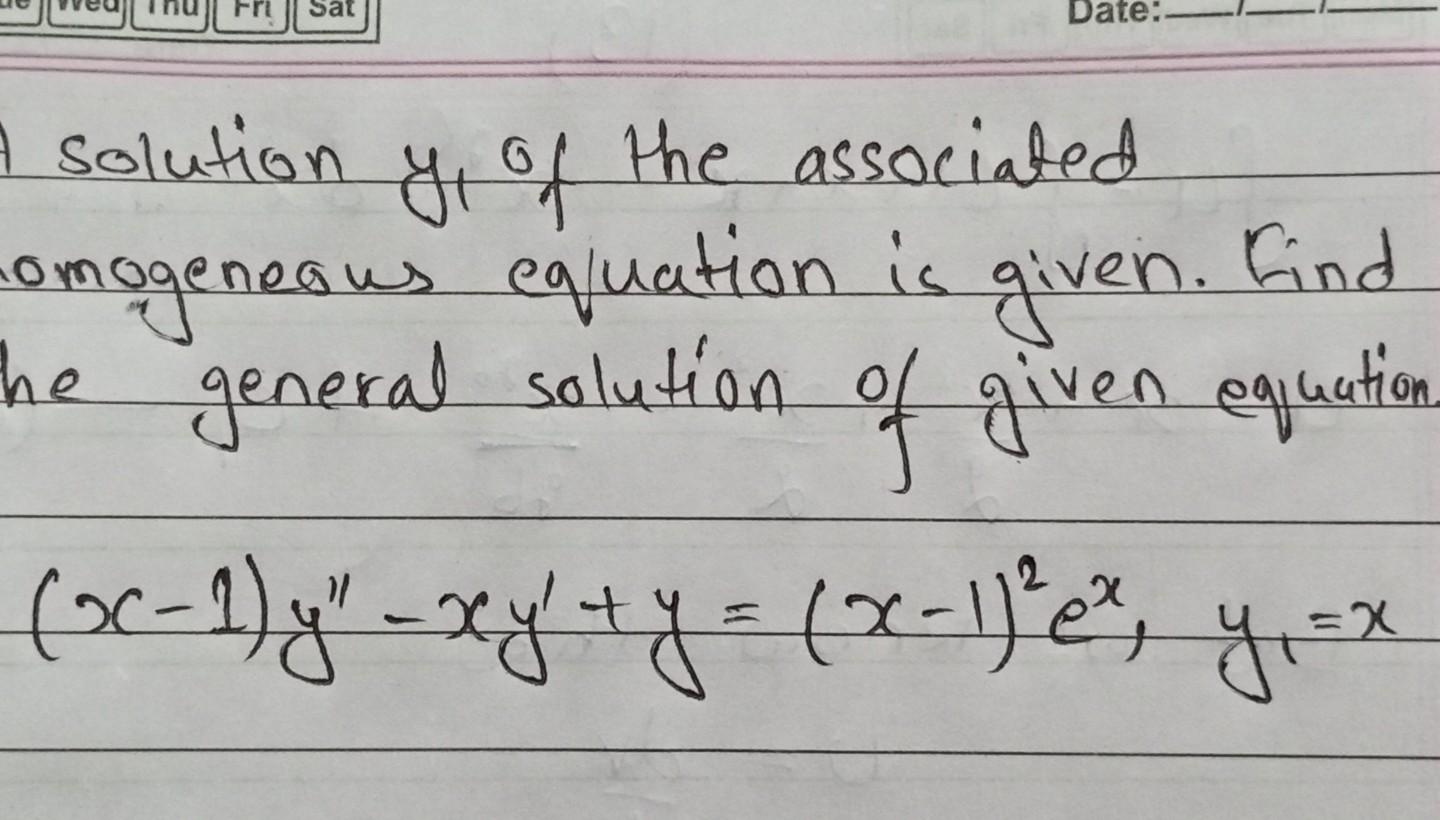 Wed Thu Fri Sat Date:___/___/___
A solution y₁ of the associated
homogeneous equation is given. Find
the general solution of given equation.
(x-1)y" - xy' + y = (x-1)² eˣ, y₁ = x